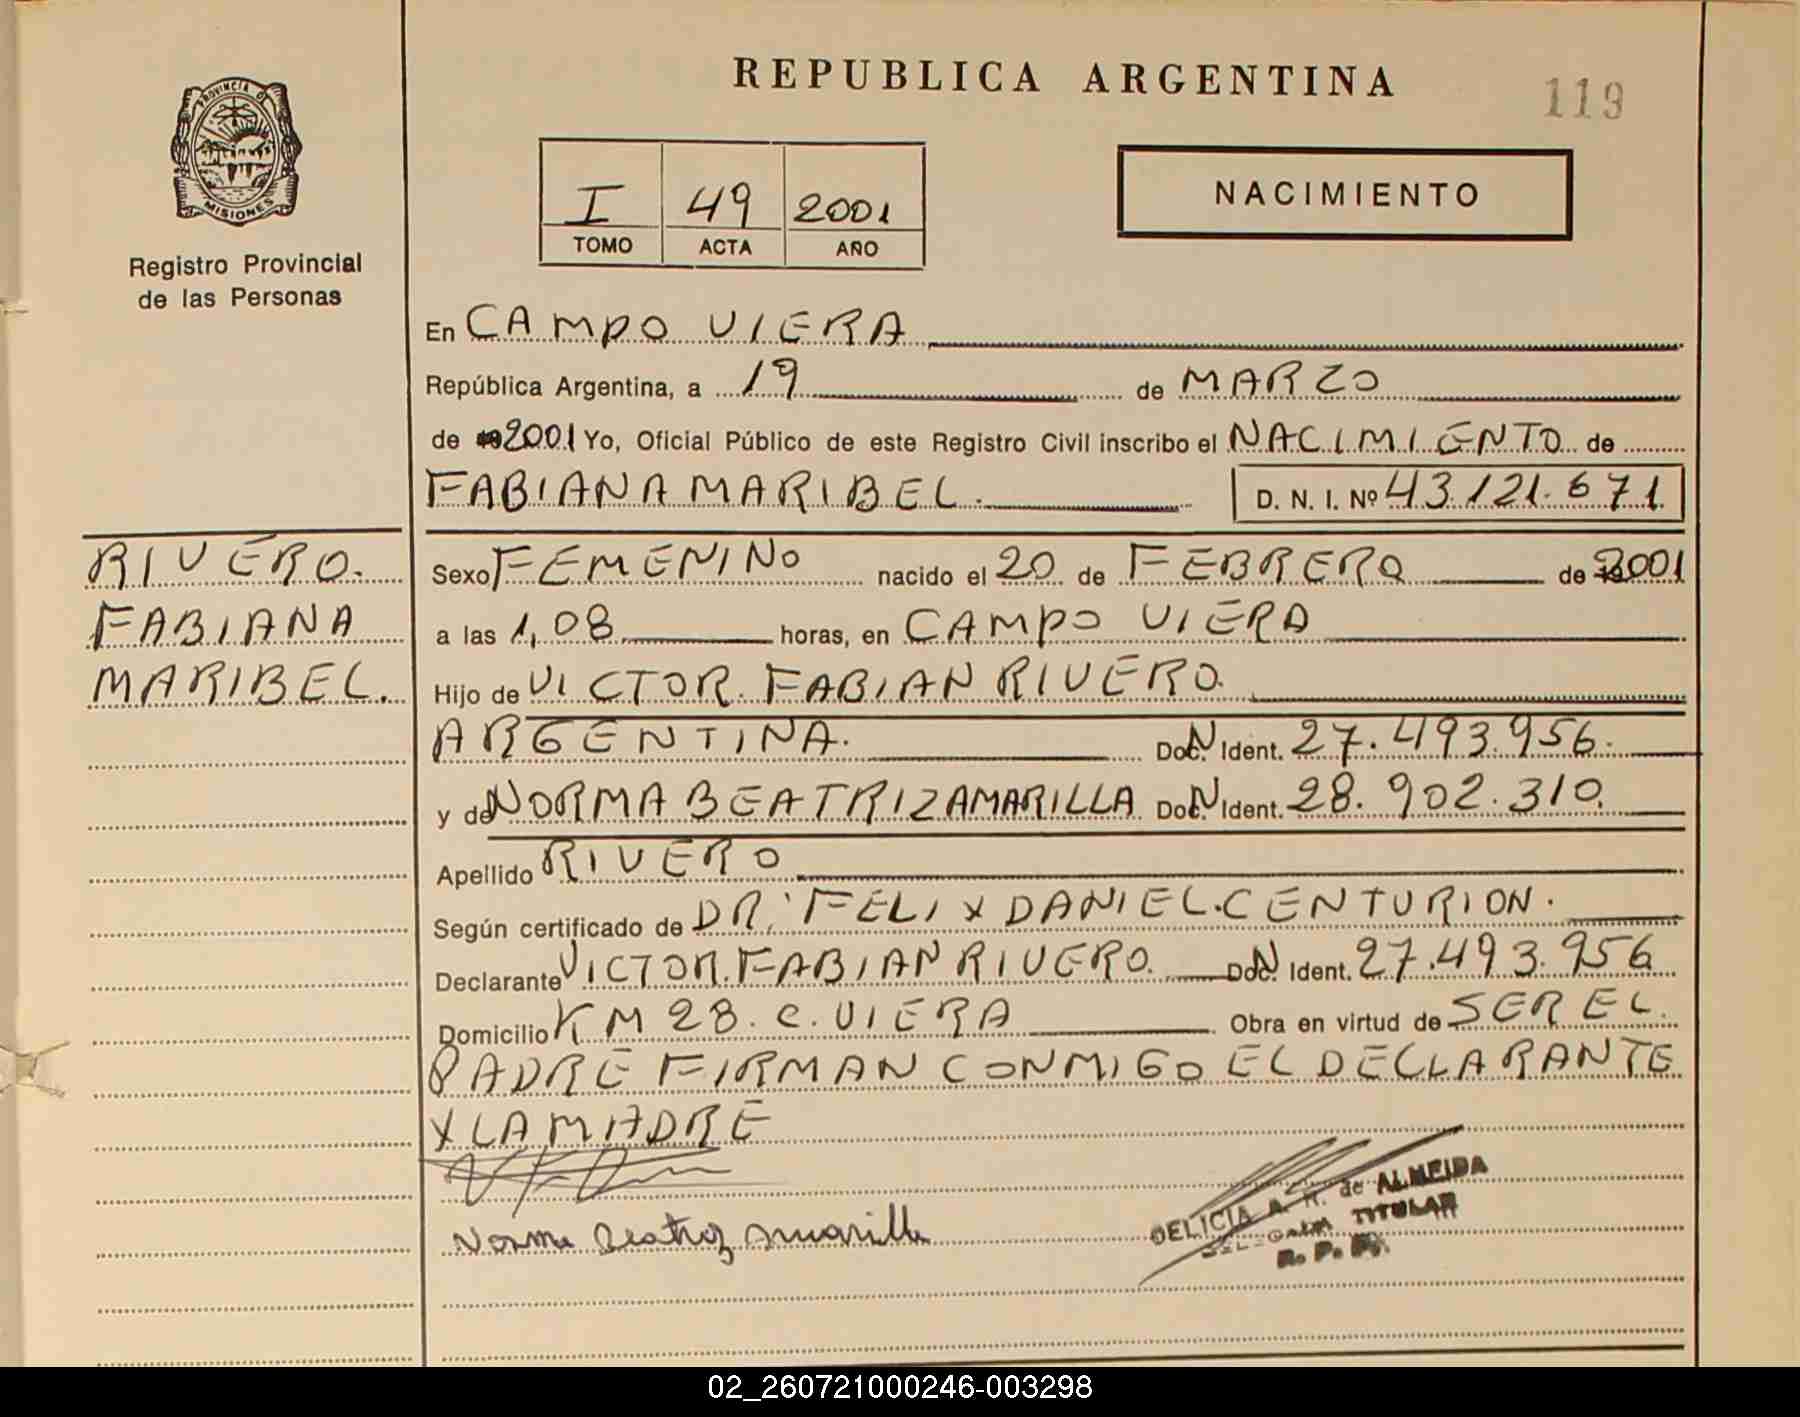 REPUBLICA ARGENTINA
119
PROVINCIA DE
MISIONES
Registro Provincial
de las Personas
I 49 2001
TOMO ACTA AÑO
NACIMIENTO
En CAMPO VIERA
República Argentina, a 19 de MARZO
de 2001 Yo, Oficial Público de este Registro Civil inscribo el NACIMIENTO de
FABIANA MARIBEL. D. N. I. Nº 43.121.671
RIVERO.
FABIANA
MARIBEL.
Sexo FEMENINO nacido el 20 de FEBRERO de 2001
a las 1,08 horas, en CAMPO VIERA
Hijo de VICTOR FABIAN RIVERO.
ARGENTINA. Doc. N Ident. 27.493.956.
y de NORMA BEATRIZ AMARILLA Doc. N Ident. 28.902.310.
Apellido RIVERO
Según certificado de DR. FELIX DANIEL CENTURION.
Declarante VICTOR FABIAN RIVERO. Doc. N Ident. 27.493.956
Domicilio KM 28. C. VIERA Obra en virtud de SER EL
PADRE FIRMAN CONMIGO EL DECLARANTE
Y LA MADRE
Norma Beatriz Amarilla
DELICIA A. R. de ALMEIDA
TITULAR
R. P. P.
02_260721000246-003298